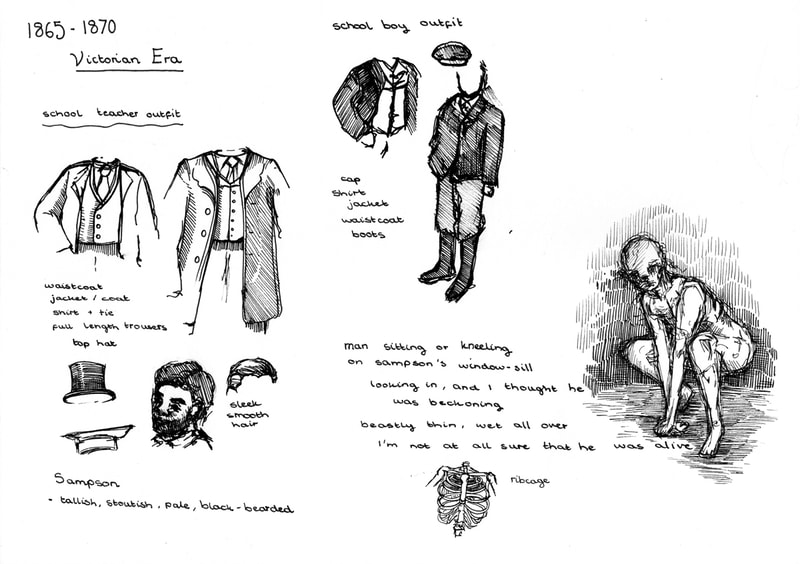 1865 - 1870
Victorian Era
school teacher outfit
waistcoat
jacket / coat
shirt + tie
full length trousers
top hat
sleek
smooth
hair
Sampson
- tallish, stoutish, pale, black-bearded
school boy outfit
cap
shirt
jacket
waistcoat
boots
man sitting or kneeling
on sampson's window-sill
looking in, and I thought he
was beckoning
beastly thin, wet all over
I'm not at all sure that he was alive
ribcage